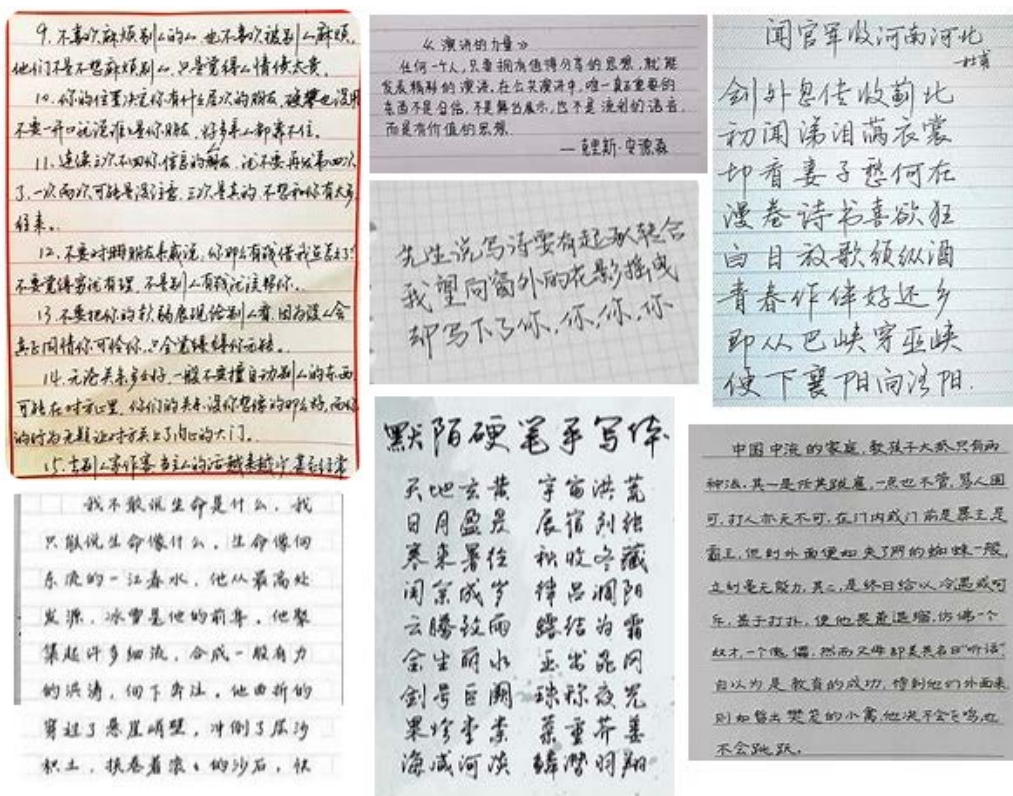 9.不喜欢麻烦别人的人,也不喜欢被别人麻烦,
他们不是不想麻烦别人,只是觉得人情债太贵。
10.你的位置决定你有什么层次的朋友,硬攀也没用
不要一开口就说谁谁是你朋友,好多亲人都靠不住。
11.连续三次不回你信息的朋友,就不要再发第四次
了,一次两次可能是没注意,三次是真的不想和你有太多
往来。
12.不要对朋友亲戚说,你那么有钱借我点怎么了?
不要觉得穷就有理,不是别人有钱就该帮你。
13.不要把你的软弱展现给别人看,因为没人会
真正同情你可怜你,只会觉得你无能。
14.无论关系多么好,一般不要擅自动别人的东西,
可能在对方心里,你们的关系没你想像的那么好,而你
的行为无疑让对方关上了内心的大门。
15.去别人家作客,当主人的话越来越少,甚至经常
《演讲的力量》
任何一个人,只要拥有值得分享的思想,就能
发表精彩的演讲。在公共演讲中,唯一真正重要的
东西不是自信,不是舞台展示,也不是流利的语言,
而是有价值的思想。
—克里斯·安德森
先生说写诗要有起承转合
我望向窗外的花影摇曳
却写下了你,你,你,你
闻官军收河南河北
—杜甫
剑外忽传收蓟北
初闻涕泪满衣裳
却看妻子愁何在
漫卷诗书喜欲狂
白日放歌须纵酒
青春作伴好还乡
即从巴峡穿巫峡
便下襄阳向洛阳.
我不敢说生命是什么,我
只能说生命像什么。生命像向
东流的一江春水,他从最高处
发源,冰雪是他的前身。他聚
集起许多细流,合成一股有力
的洪涛,向下奔注,他曲折的
穿过了悬崖峭壁,冲倒了层沙
积土,挟卷着滚滚的沙石,快
默陌硬笔手写体
天地玄黄 宇宙洪荒
日月盈昃 辰宿列张
寒来暑往 秋收冬藏
闰余成岁 律吕调阳
云腾致雨 露结为霜
金生丽水 玉出昆冈
剑号巨阙 珠称夜光
果珍李柰 菜重芥姜
海咸河淡 鳞潜羽翔
中国中流的家庭,教孩子大抵只有两
种法。其一是任其跋扈,一点也不管,骂人固
可,打人亦无不可,在门内或门前是暴主,是
霸王,但到外面便如失了网的蜘蛛一般,
立刻毫无能力。其二,是终日给以冷遇或呵
斥,甚于打扑,使他畏葸退缩,仿佛一个
奴才,一个傀儡,然而父母却美其名曰“听话”,
自以为是教育的成功,待到他们外面来,
则如暂出樊笼的小禽,他决不会飞鸣,也
不会跳跃。